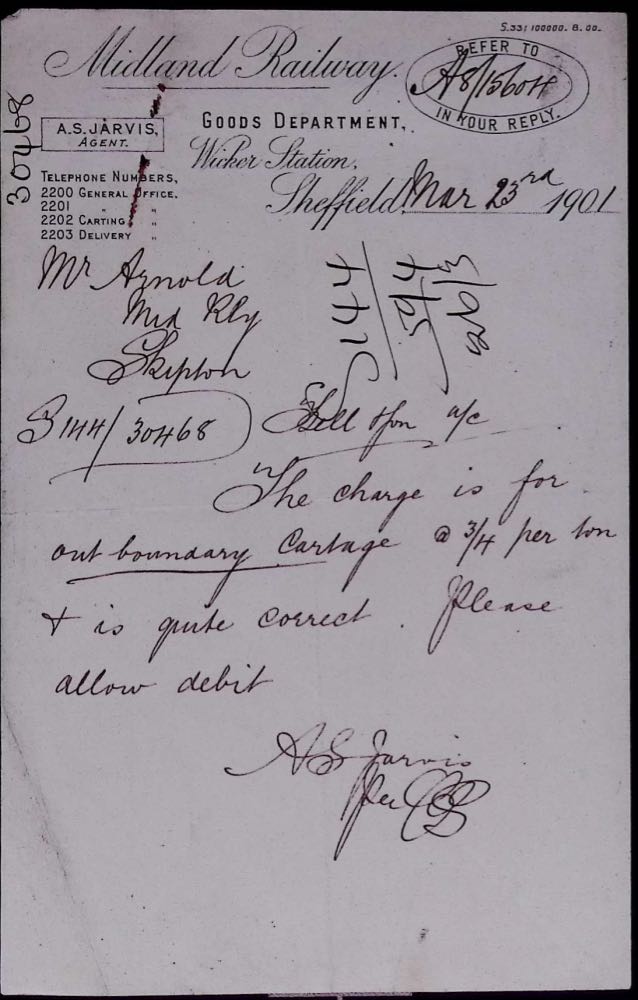 S.33/100000. 8. 00.
Midland Railway.
REFER TO
A8/15604
IN YOUR REPLY.
30468
A.S. JARVIS,
AGENT.
GOODS DEPARTMENT,
Wicker Station,
Sheffield, Mar 23rd 1901
TELEPHONE NUMBERS,
2200 GENERAL OFFICE.
2201 " "
2202 CARTING "
2203 DELIVERY "
Mr Arnold
Mid Rly
Skipton
3144/30468
a/c
The charge is for
out boundary Cartage @ 3/4 per ton
& is quite correct. Please
allow debit
A S Jarvis
Per